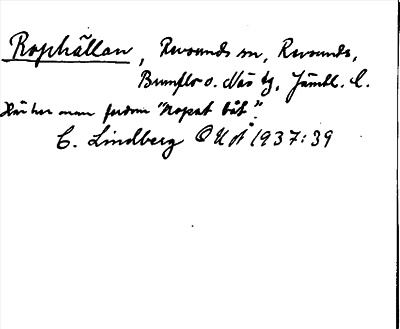 Rophällan, Revsunds sn, Revsunds,
Brunflo o. Näs tg, Jämtl. l.
Här har man fordom "Ropat båt".
C. Lindberg OUÅ 1937:39